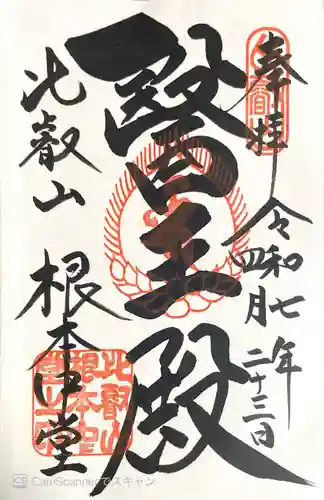 奉拝
令和七年
四月二十三日
醫王殿
比叡山
根本中堂
比叡山
根本中
堂之印
CamScannerでスキャン